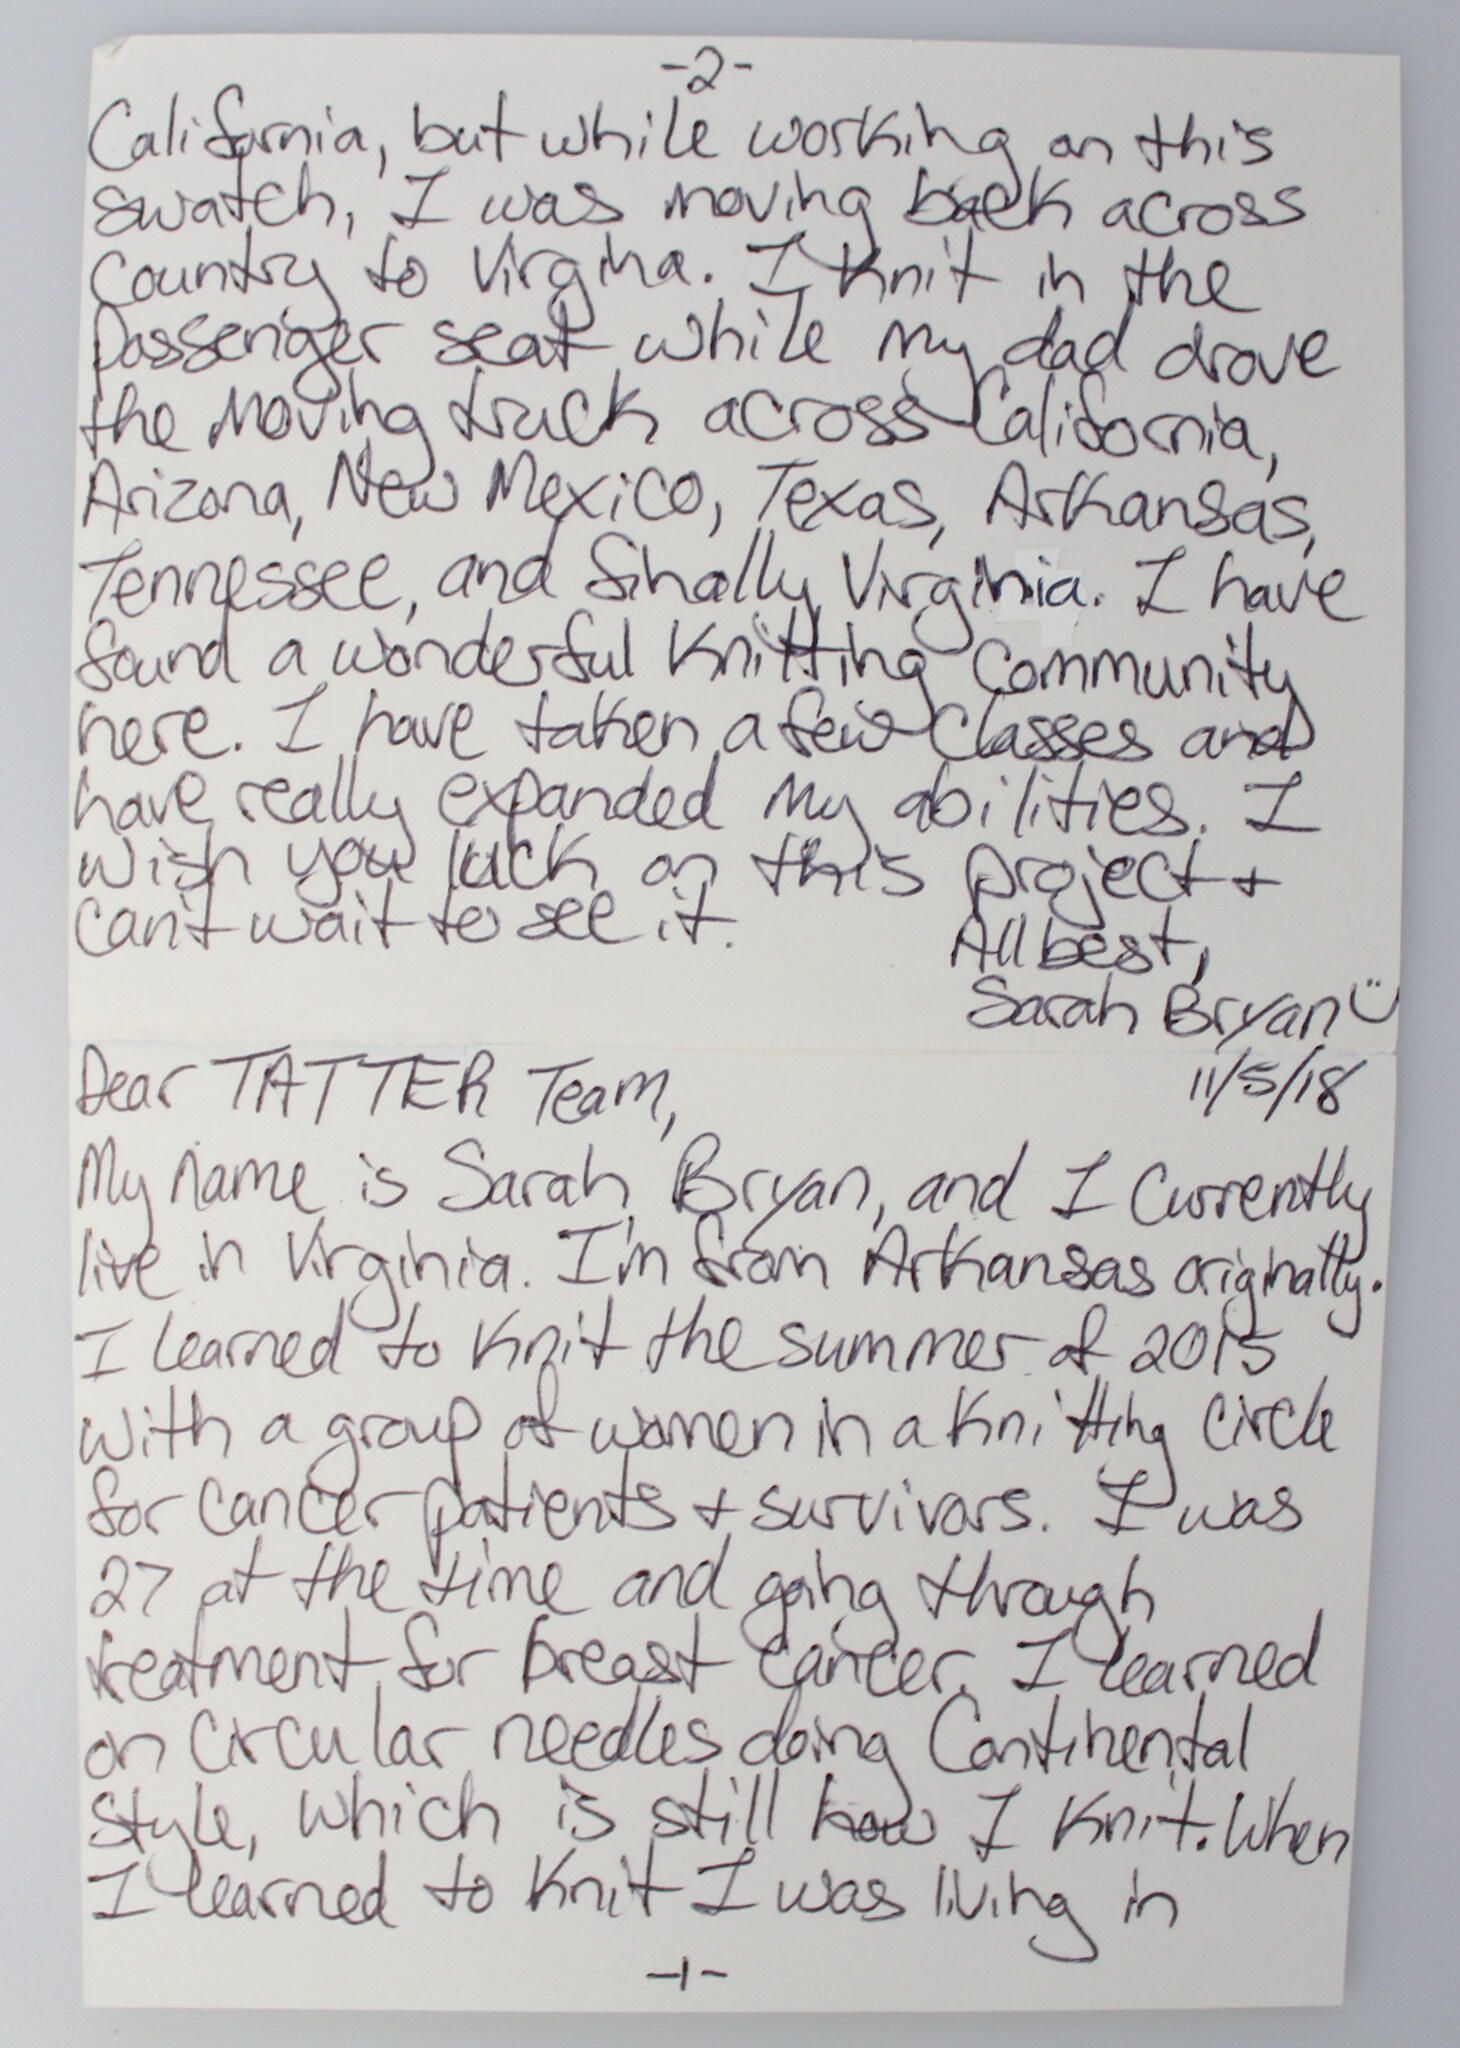 Dear TATTER Team,
11/5/18
My name is Sarah Bryan, and I currently
live in Virginia. I'm from Arkansas originally.
I learned to knit the summer of 2015
with a group of women in a knitting circle
for cancer patients + survivors. I was
27 at the time and going through
treatment for breast cancer. I learned
on circular needles doing Continental
style, which is still how I knit. When
I learned to knit I was living in
-1-
-2-
California, but while working on this
swatch, I was moving back across
country to Virgina. I knit in the
passenger seat while my dad drove
the moving truck across California,
Arizona, New Mexico, Texas, Arkansas,
Tennessee, and finally Virginia. I have
found a wonderful knitting community
here. I have taken a few classes and
have really expanded my abilities. I
wish you luck on this project +
can't wait to see it.
All best,
Sarah Bryan